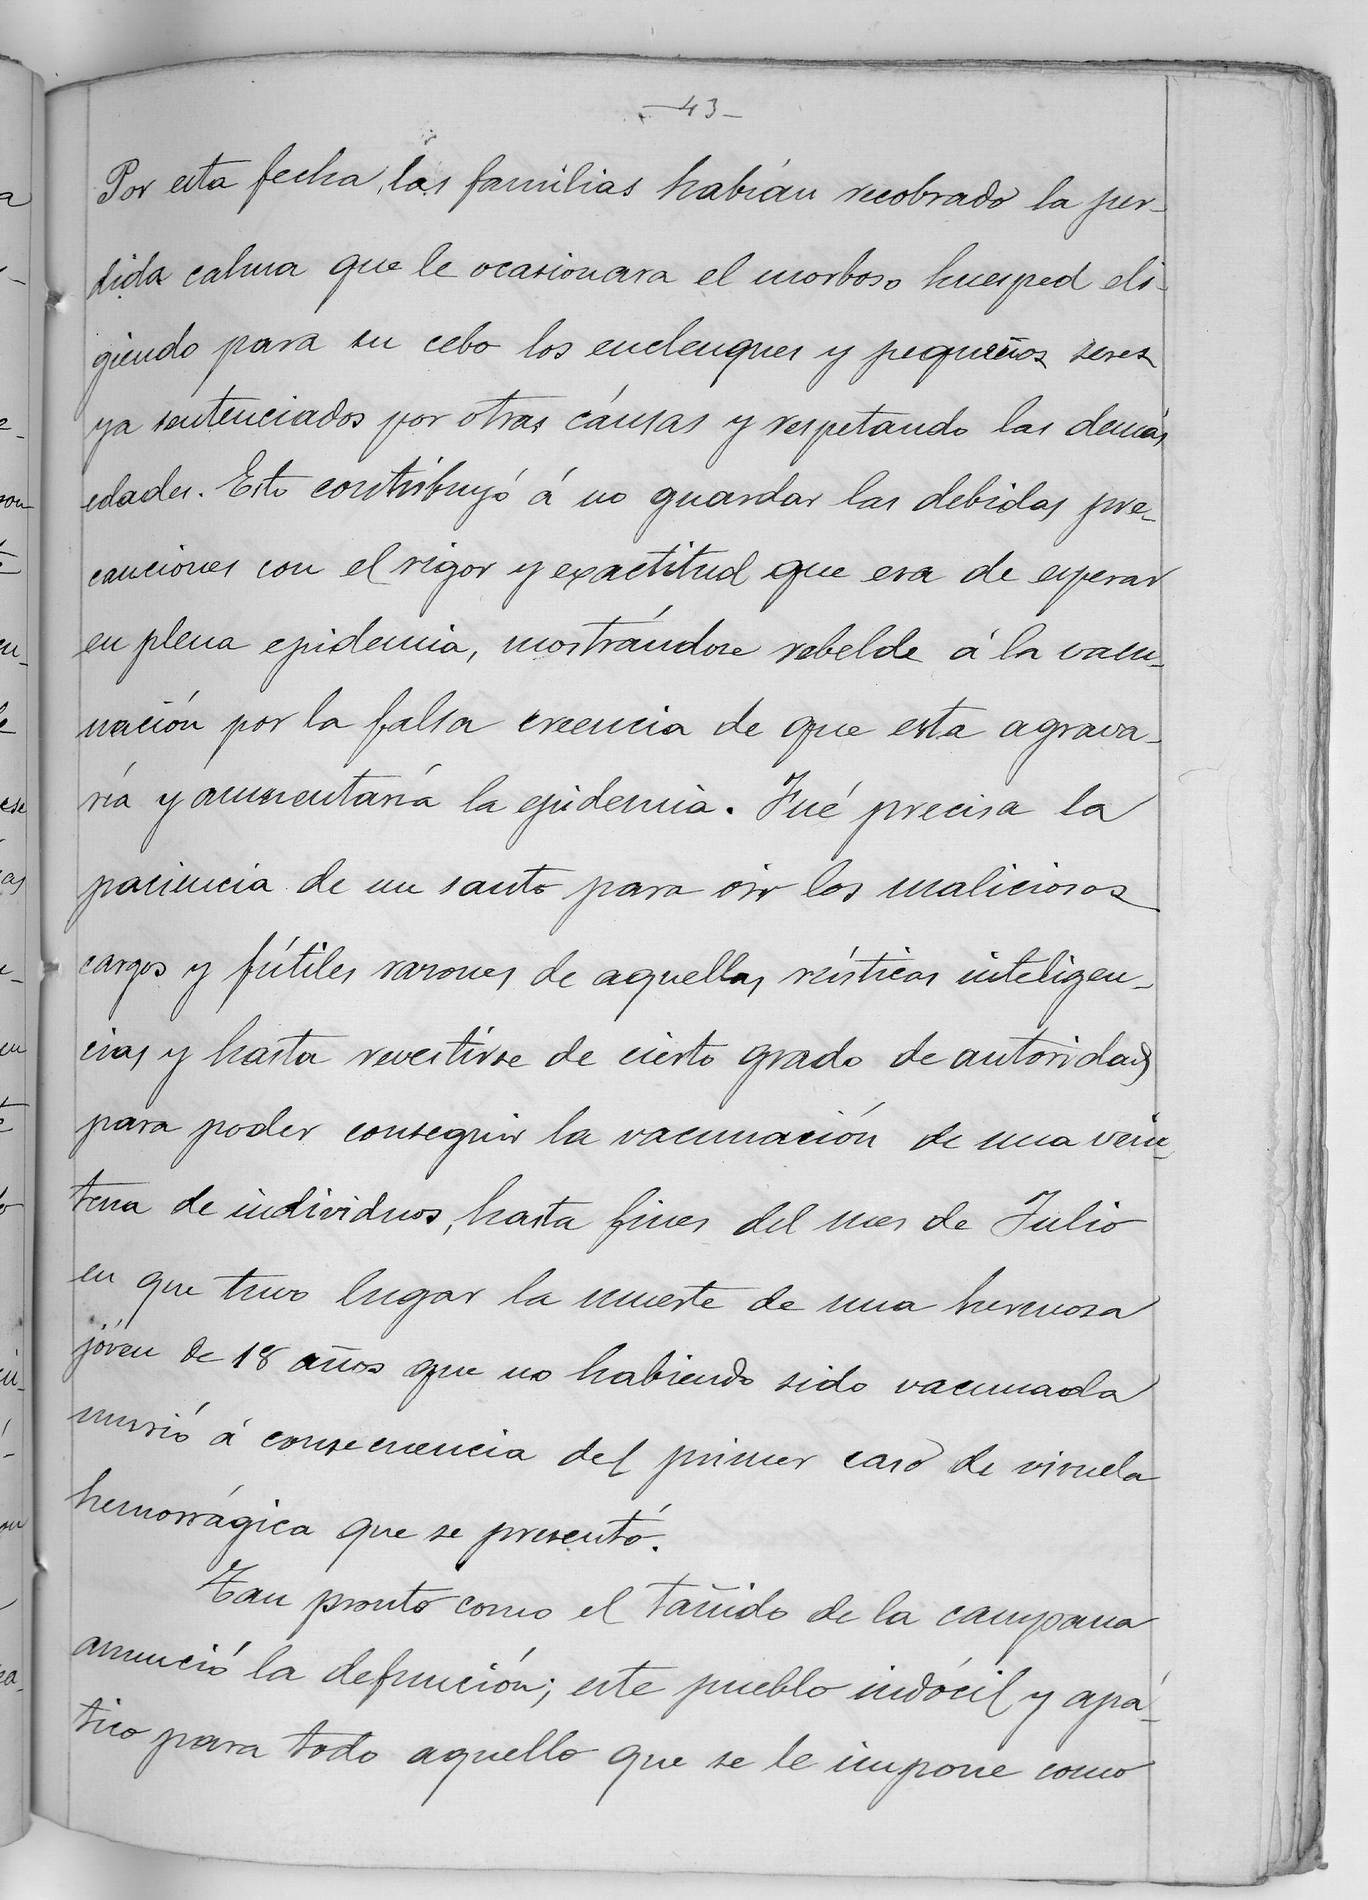 -43-
Por esta fecha, las familias habían recobrado la per-
dida calma que le ocasionara el morboso huesped eli-
giendo para su cebo los enclenques y pequeños seres
ya sentenciados por otras cáusas y respetando las demás
edades. Esto contribuyó á no guardar las debidas pre-
cauciones con el rigor y exactitud que era de esperar
en plena epidemia, mostrándose rebelde á la vacu-
nación por la falsa creencia de que esta agrava-
ría y aumentaría la epidemia. Fué precisa la
paciencia de un santo para oir los maliciosos
cargos y fútiles razones de aquellas rústicas inteligen-
cias y hasta revestirse de cierto grado de autoridad
para poder conseguir la vacunación de una vein-
tena de individuos, hasta fines del mes de Julio
en que tuvo lugar la muerte de una hermosa
jóven de 18 años que no habiendo sido vacunada
murió á consecuencia del primer caso de viruela
hemorrágica que se presentó.
Tan pronto como el tañido de la campana
anunció la defunción; este pueblo indócil y apá-
tico para todo aquello que se le impone como